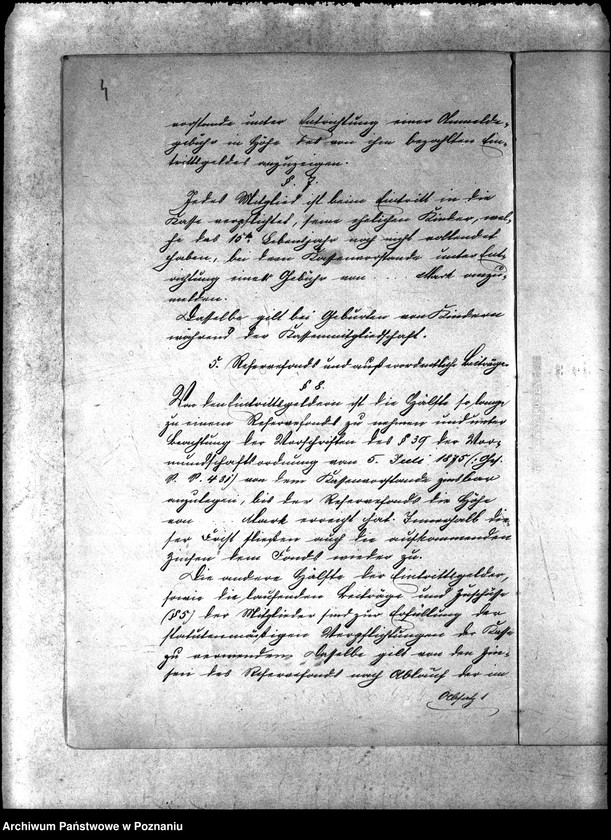 4
vorstande unter Entrichtung einer Anmelde-
gebühr in Höhe des von ihm bezahlten Ein-
trittsgeldes anzuzeigen.
§ 7.
Jedes Mitglied ist beim Eintritt in die
Kasse verpflichtet, seine ehelichen Kinder, wel-
che das 15te Lebensjahr noch nicht vollendet
haben, bei dem Kassenvorstande unter Ent-
richtung einer Gebühr von . . . Mark anzu-
melden.
Dasselbe gilt bei Geburten von Kindern
während der Kassenmitgliedschaft.
5. Reservefonds und außerordentliche Beiträge.
§ 8.
Von den Eintrittsgeldern ist die Hälfte so lange
zu einem Reservefonds zu nehmen und unter
Beachtung der Vorschriften des § 39 der Vor-
mundschaftsordnung vom 5. Juli 1875 (: Ges.
S. S. 431) von dem Kassenvorstande zinsbar
anzulegen, bis der Reservefonds die Höhe
von Mark erreicht hat. Innerhalb die-
ser Frist fließen auch die aufkommenden
Zinsen dem Fonds wieder zu.
Die andere Hälfte der Eintrittsgelder,
sowie die laufenden Beiträge und Zuschüsse
(§ 5) der Mitglieder sind zur Erfüllung der
statutenmäßigen Verpflichtungen der Kasse
zu verwenden. Dasselbe gilt von den Zin-
sen des Reservefonds nach Ablauf der im
Absatz 1
Archiwum Państwowe w Poznaniu